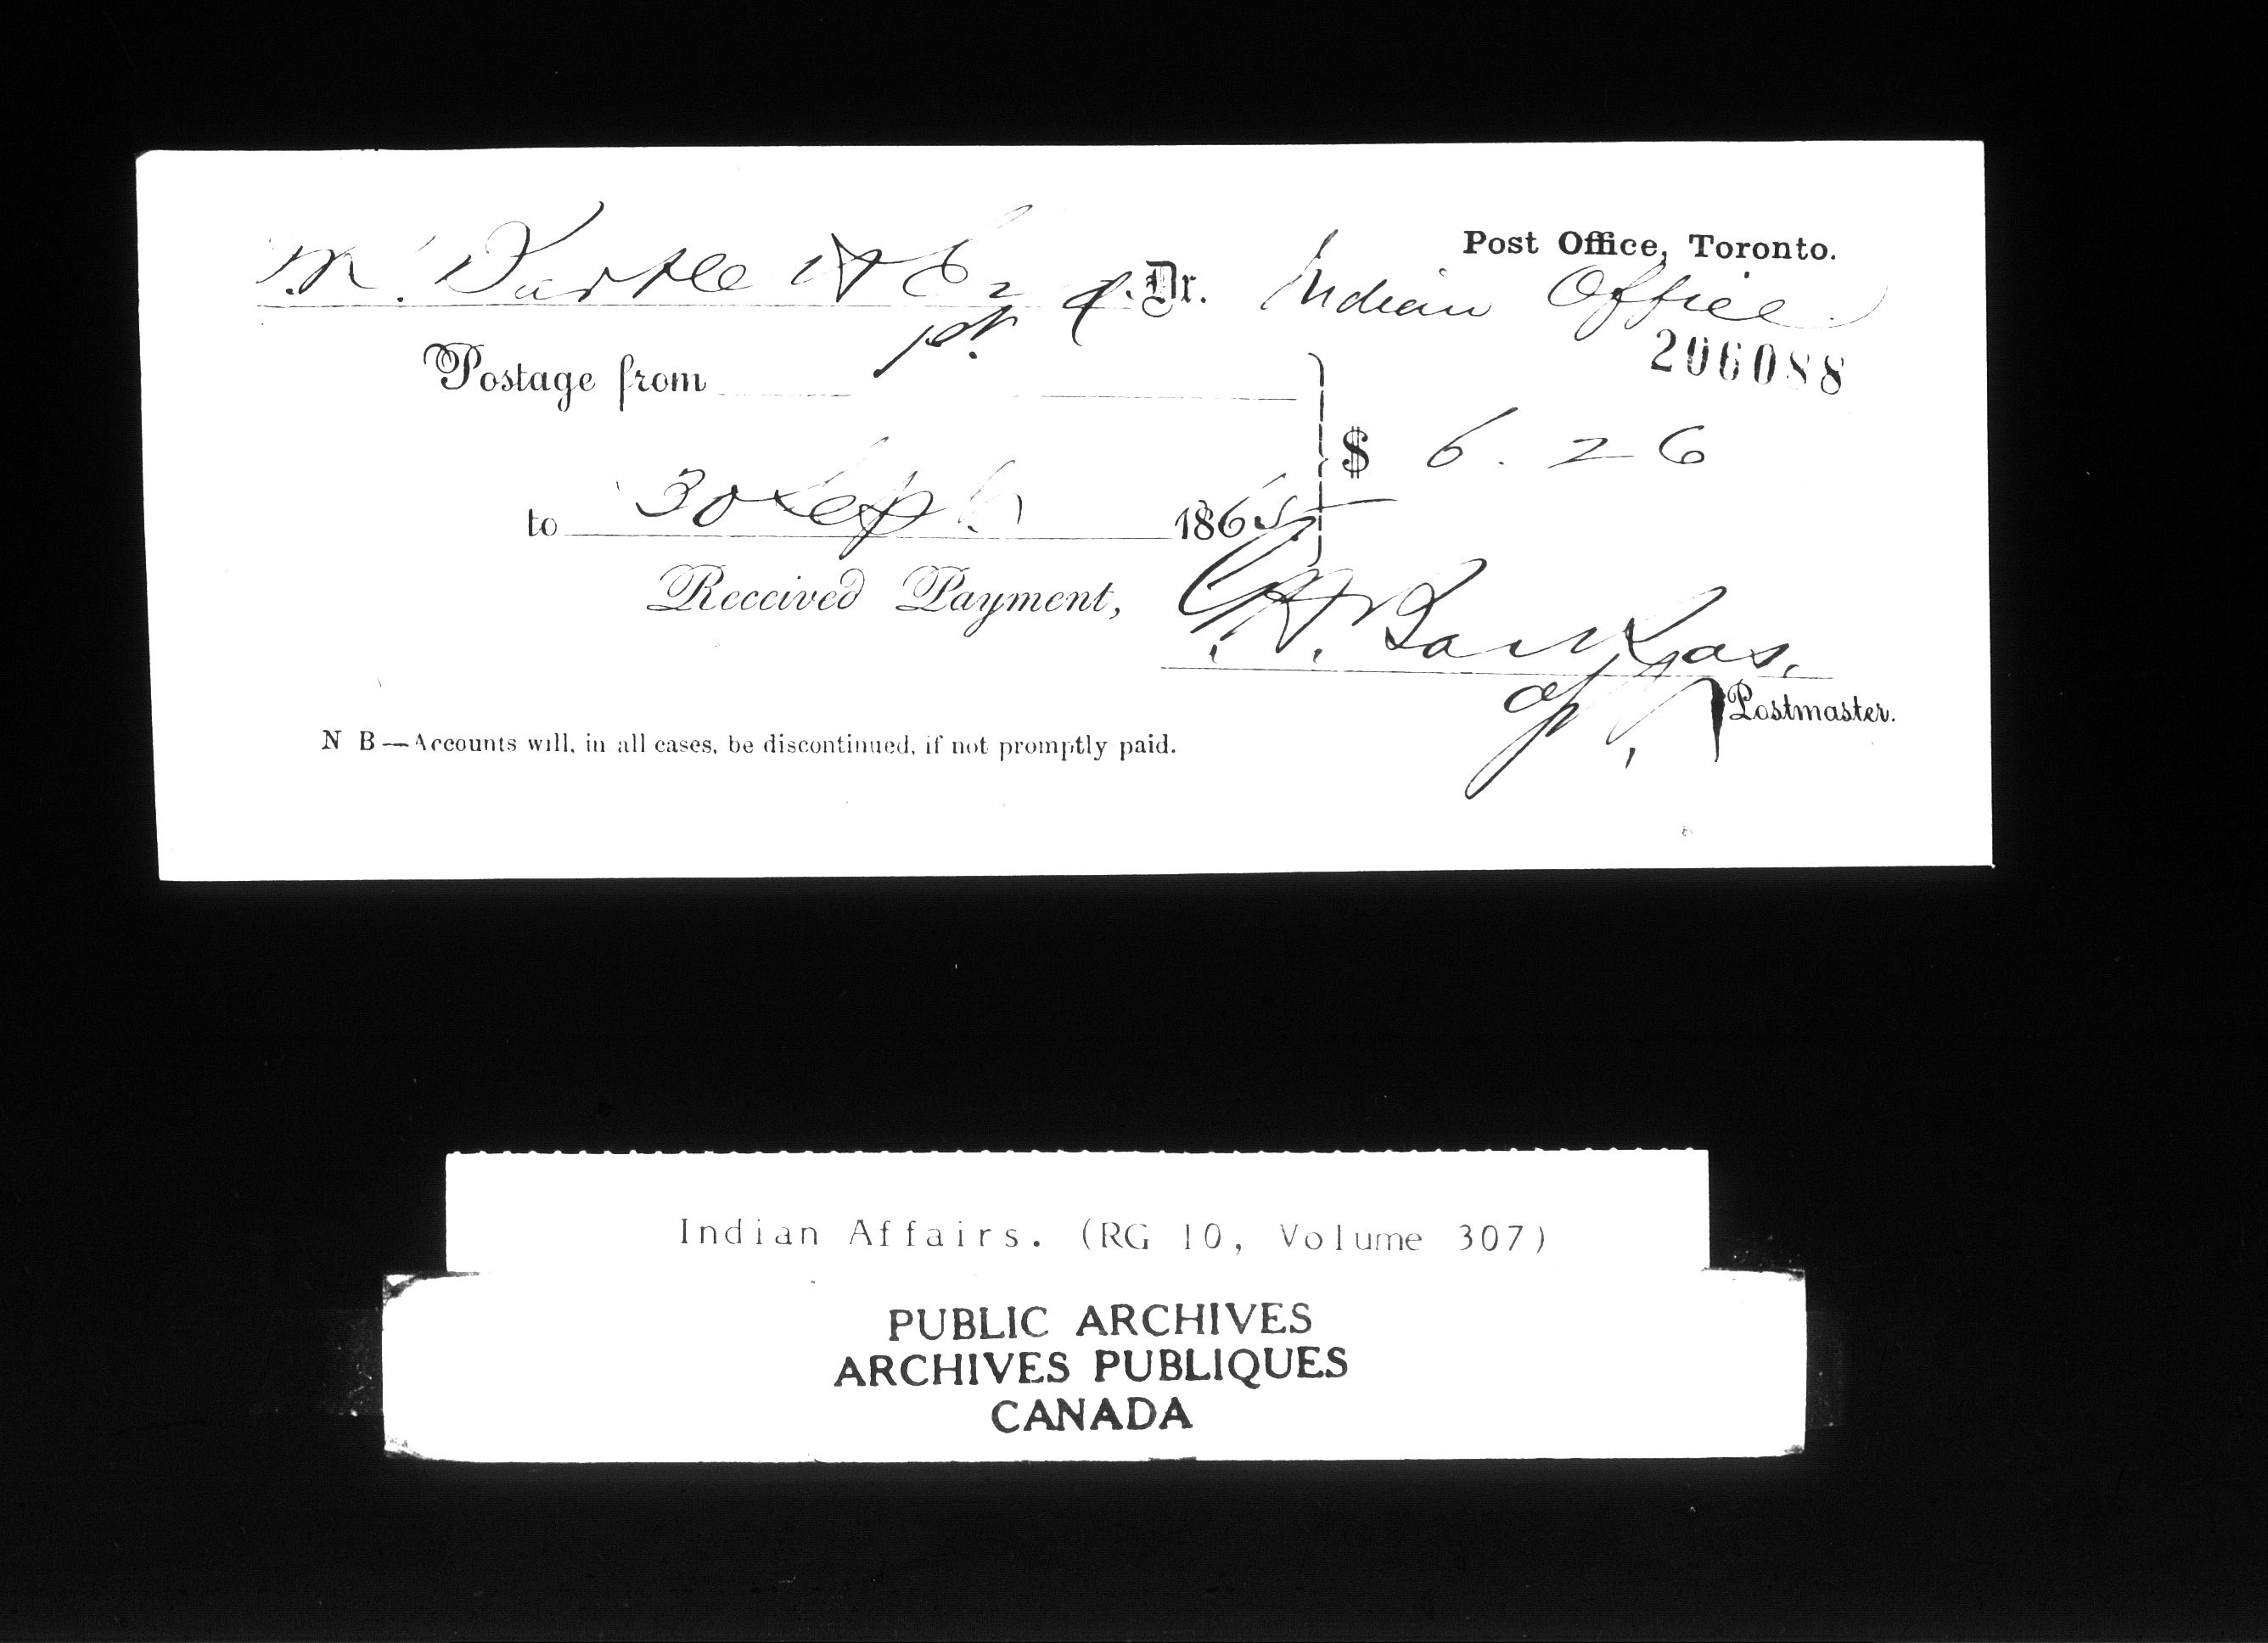 Post Office, Toronto.
W. Bartlett Esq. Dr. Indian Office
206088
Postage from
$ 6.26
to 30 Sept 1865
Received Payment,
Postmaster.
N B—Accounts will, in all cases, be discontinued, if not promptly paid.
Indian Affairs. (RG 10, Volume 307)
PUBLIC ARCHIVES
ARCHIVES PUBLIQUES
CANADA